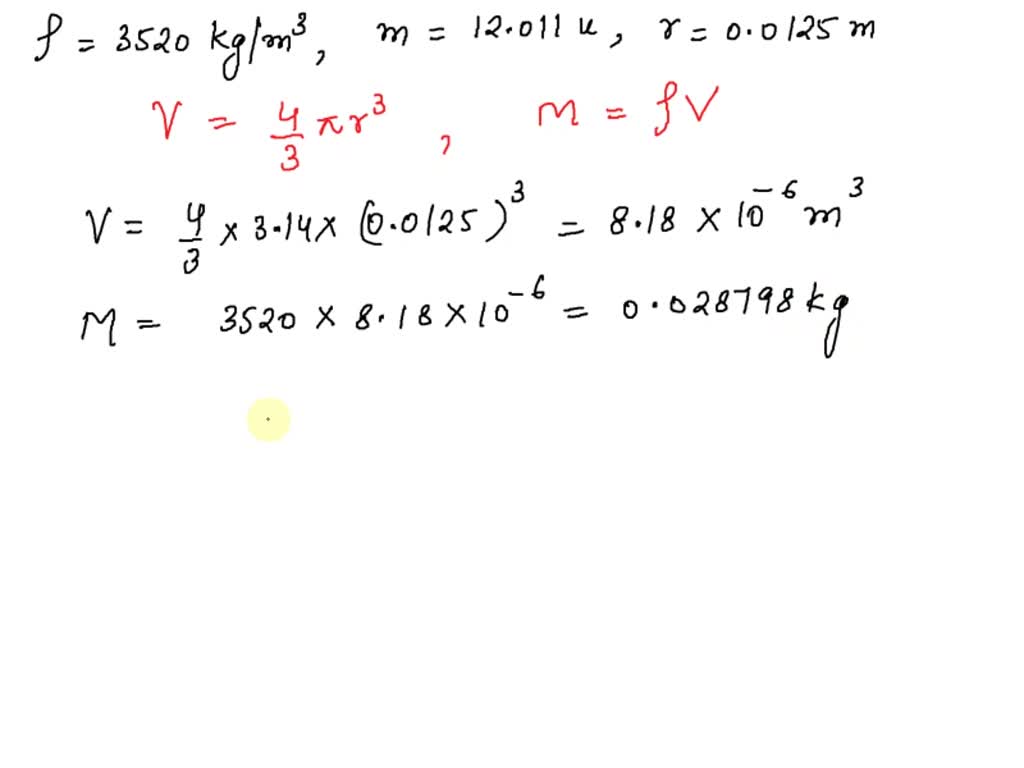 ρ = 3520 kg/m³, m = 12.011 u, r = 0.0125 m
V = 4/3 πr³, M = ρV
V = 4/3 × 3.14 × (0.0125)³ = 8.18 × 10⁻⁶ m³
M = 3520 × 8.18 × 10⁻⁶ = 0.028798 kg